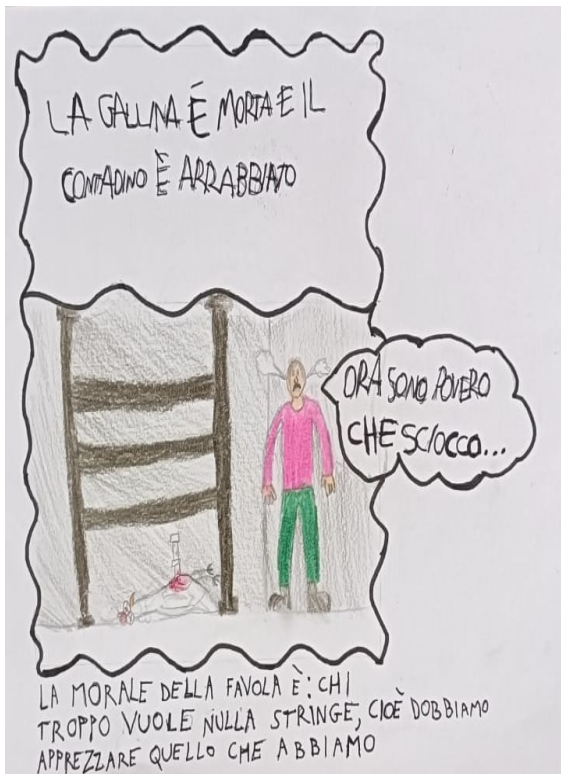 LA GALLINA É MORTA E IL
CONTADINO È ARRABBIATO
ORA SONO POVERO
CHE SCIOCCO...
LA MORALE DELLA FAVOLA È: CHI
TROPPO VUOLE NULLA STRINGE, CIOÈ DOBBIAMO
APPREZZARE QUELLO CHE ABBIAMO